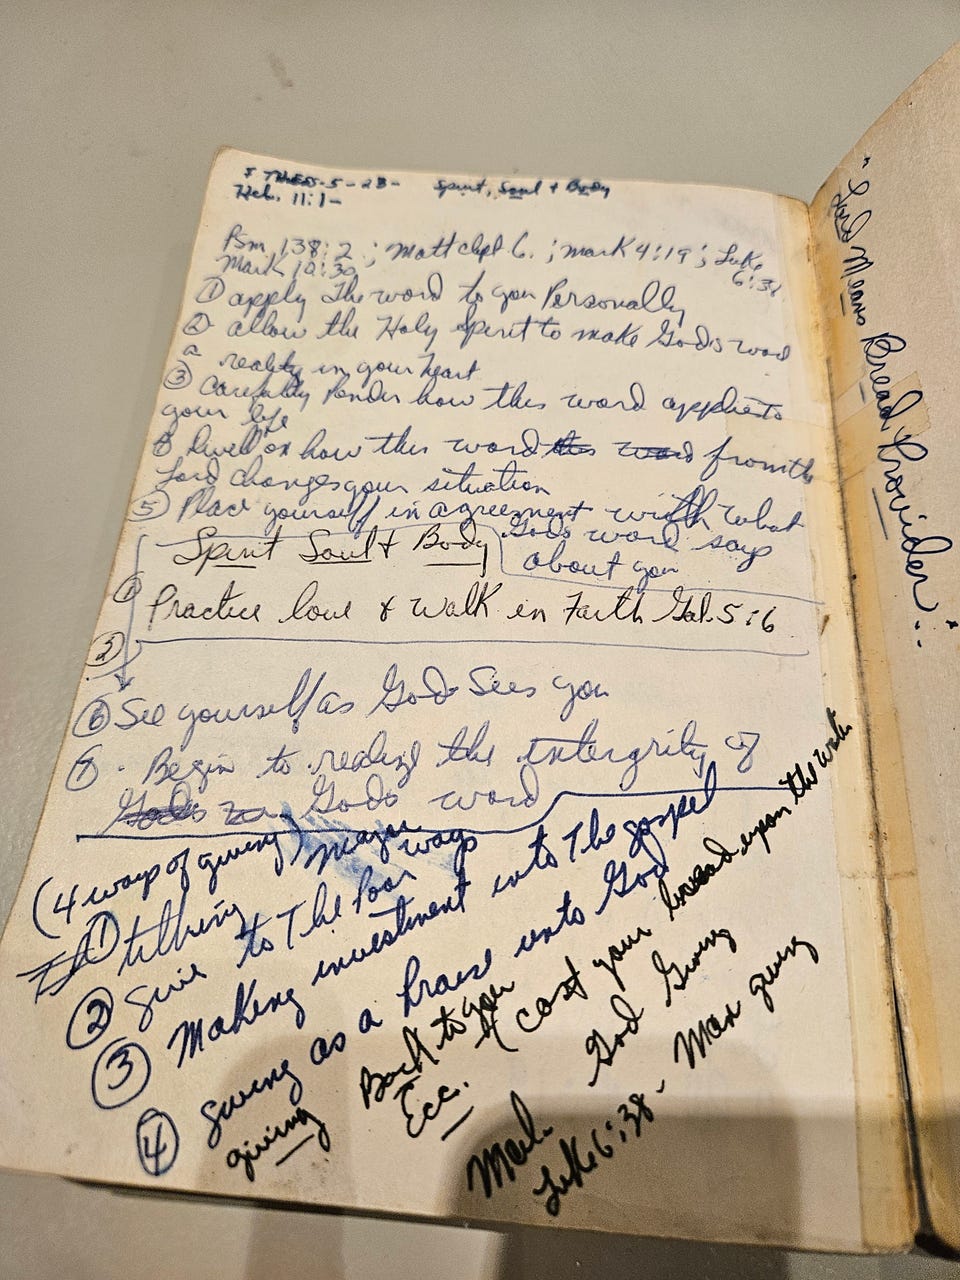 I THESS-5-23- Spirit, Soul + Body
Heb. 11:1-
Psm 138:2; Matt chpt 6.; mark 4:19; Luke 6:38
Mark 10:30
① apply The word to you Personally
② allow the Holy Spirit to make Gods word
a reality in your heart
③ Carefully Ponder how this word applies to
your life
Dwell on how this word from the
Lord changes your situation
⑤ Place yourself in agreement with what
Gods word says
about you
Spirit Soul + Body
Practice love & walk in Faith Gal. 5:6
⑥ See yourself as God Sees you
Begin to realize the intergrity of
Gods word
(4 ways of giving) Major ways
① tithing
② give to The Poor
③ Making investment into The gospel
④ Giving as a Praise unto God
giving Back to you
Ecc. (cast your bread upon the water
Mal. God Giving
Luke 6:38- Man giving
"Lord Means Bread Provider."